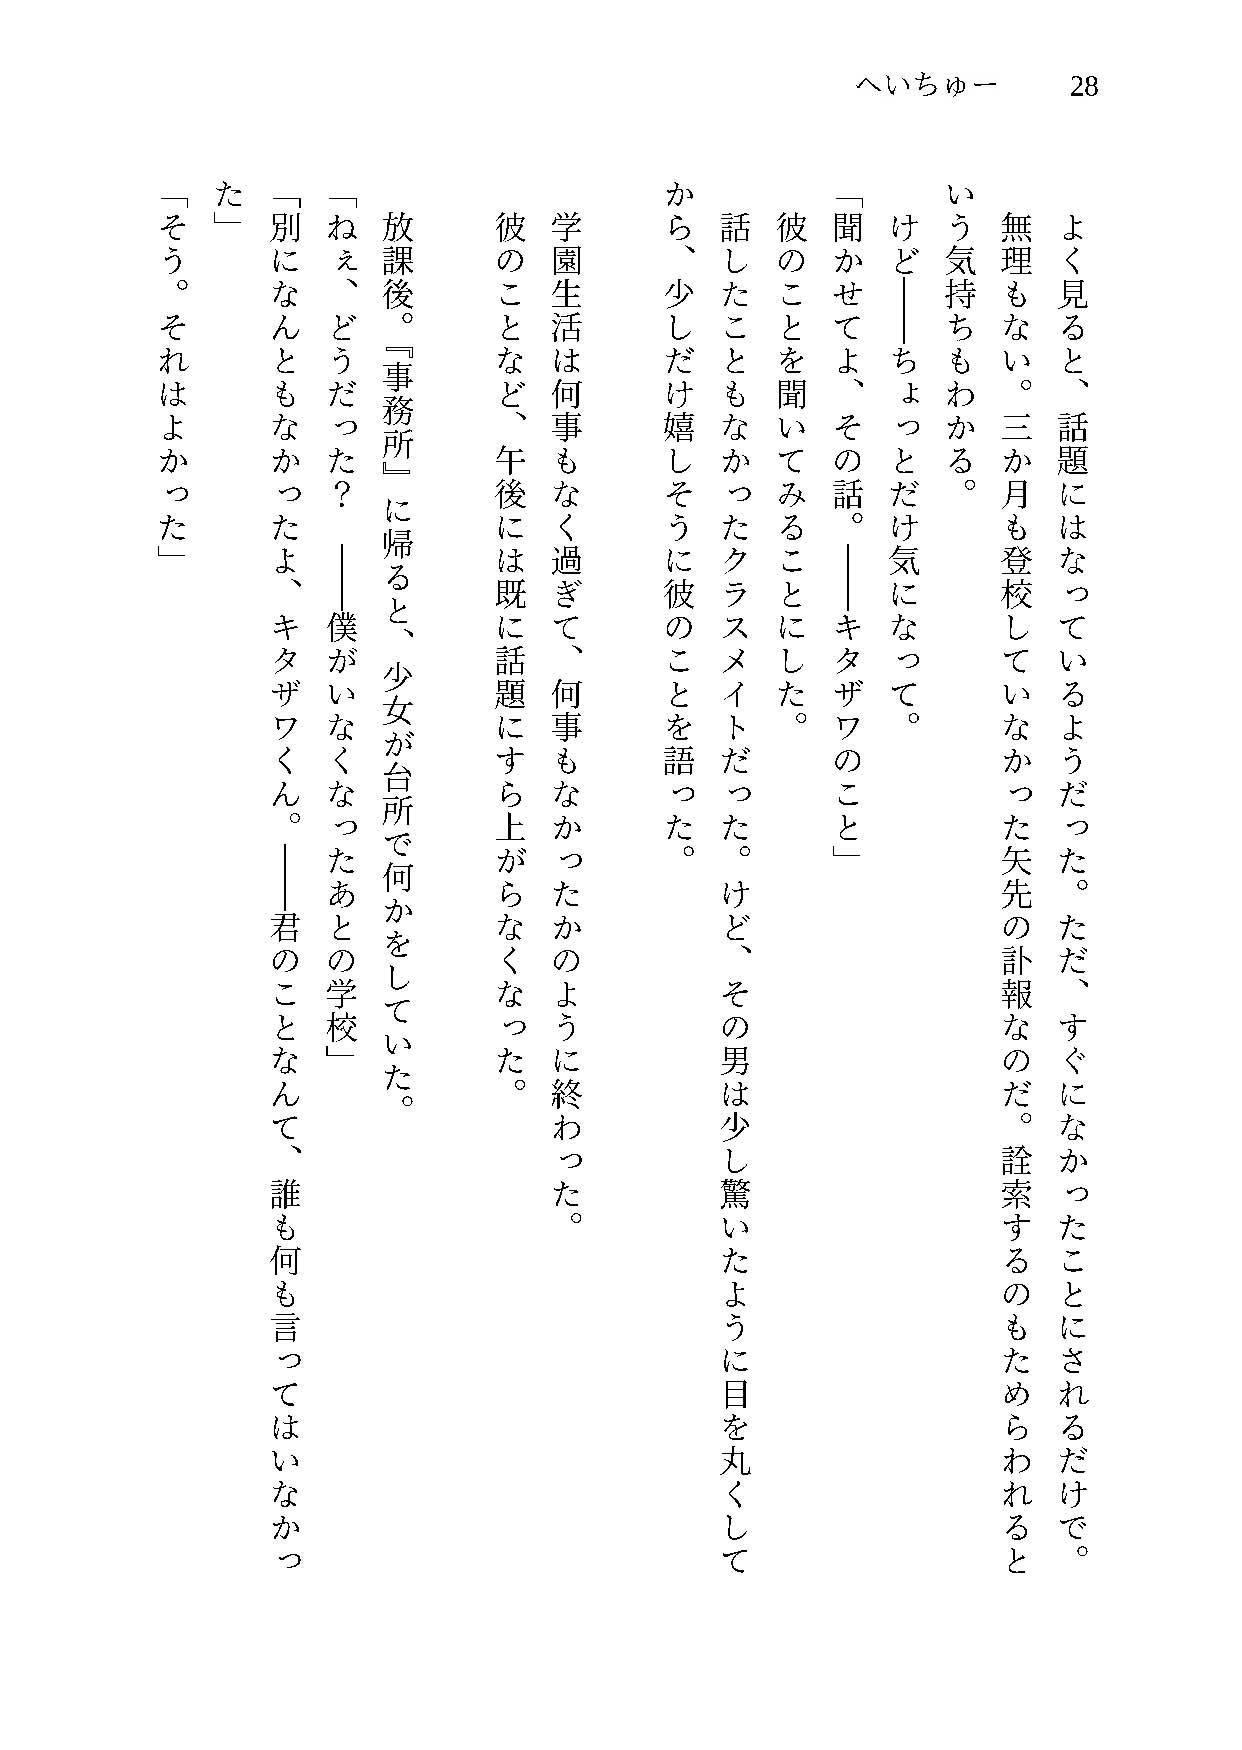 へいちゅー 28
よく見ると、話題にはなっているようだった。ただ、すぐになかったことにされるだけで。
無理もない。三か月も登校していなかった矢先の訃報なのだ。詮索するのもためらわれると
いう気持ちもわかる。
けど――ちょっとだけ気になって。
「聞かせてよ、その話。――キタザワのこと」
彼のことを聞いてみることにした。
話したこともなかったクラスメイトだった。けど、その男は少し驚いたように目を丸くして
から、少しだけ嬉しそうに彼のことを語った。
学園生活は何事もなく過ぎて、何事もなかったかのように終わった。
彼のことなど、午後には既に話題にすら上がらなくなった。
放課後。『事務所』に帰ると、少女が台所で何かをしていた。
「ねぇ、どうだった？――僕がいなくなったあとの学校」
「別になんともなかったよ、キタザワくん。――君のことなんて、誰も何も言ってはいなかっ
た」
「そう。それはよかった」